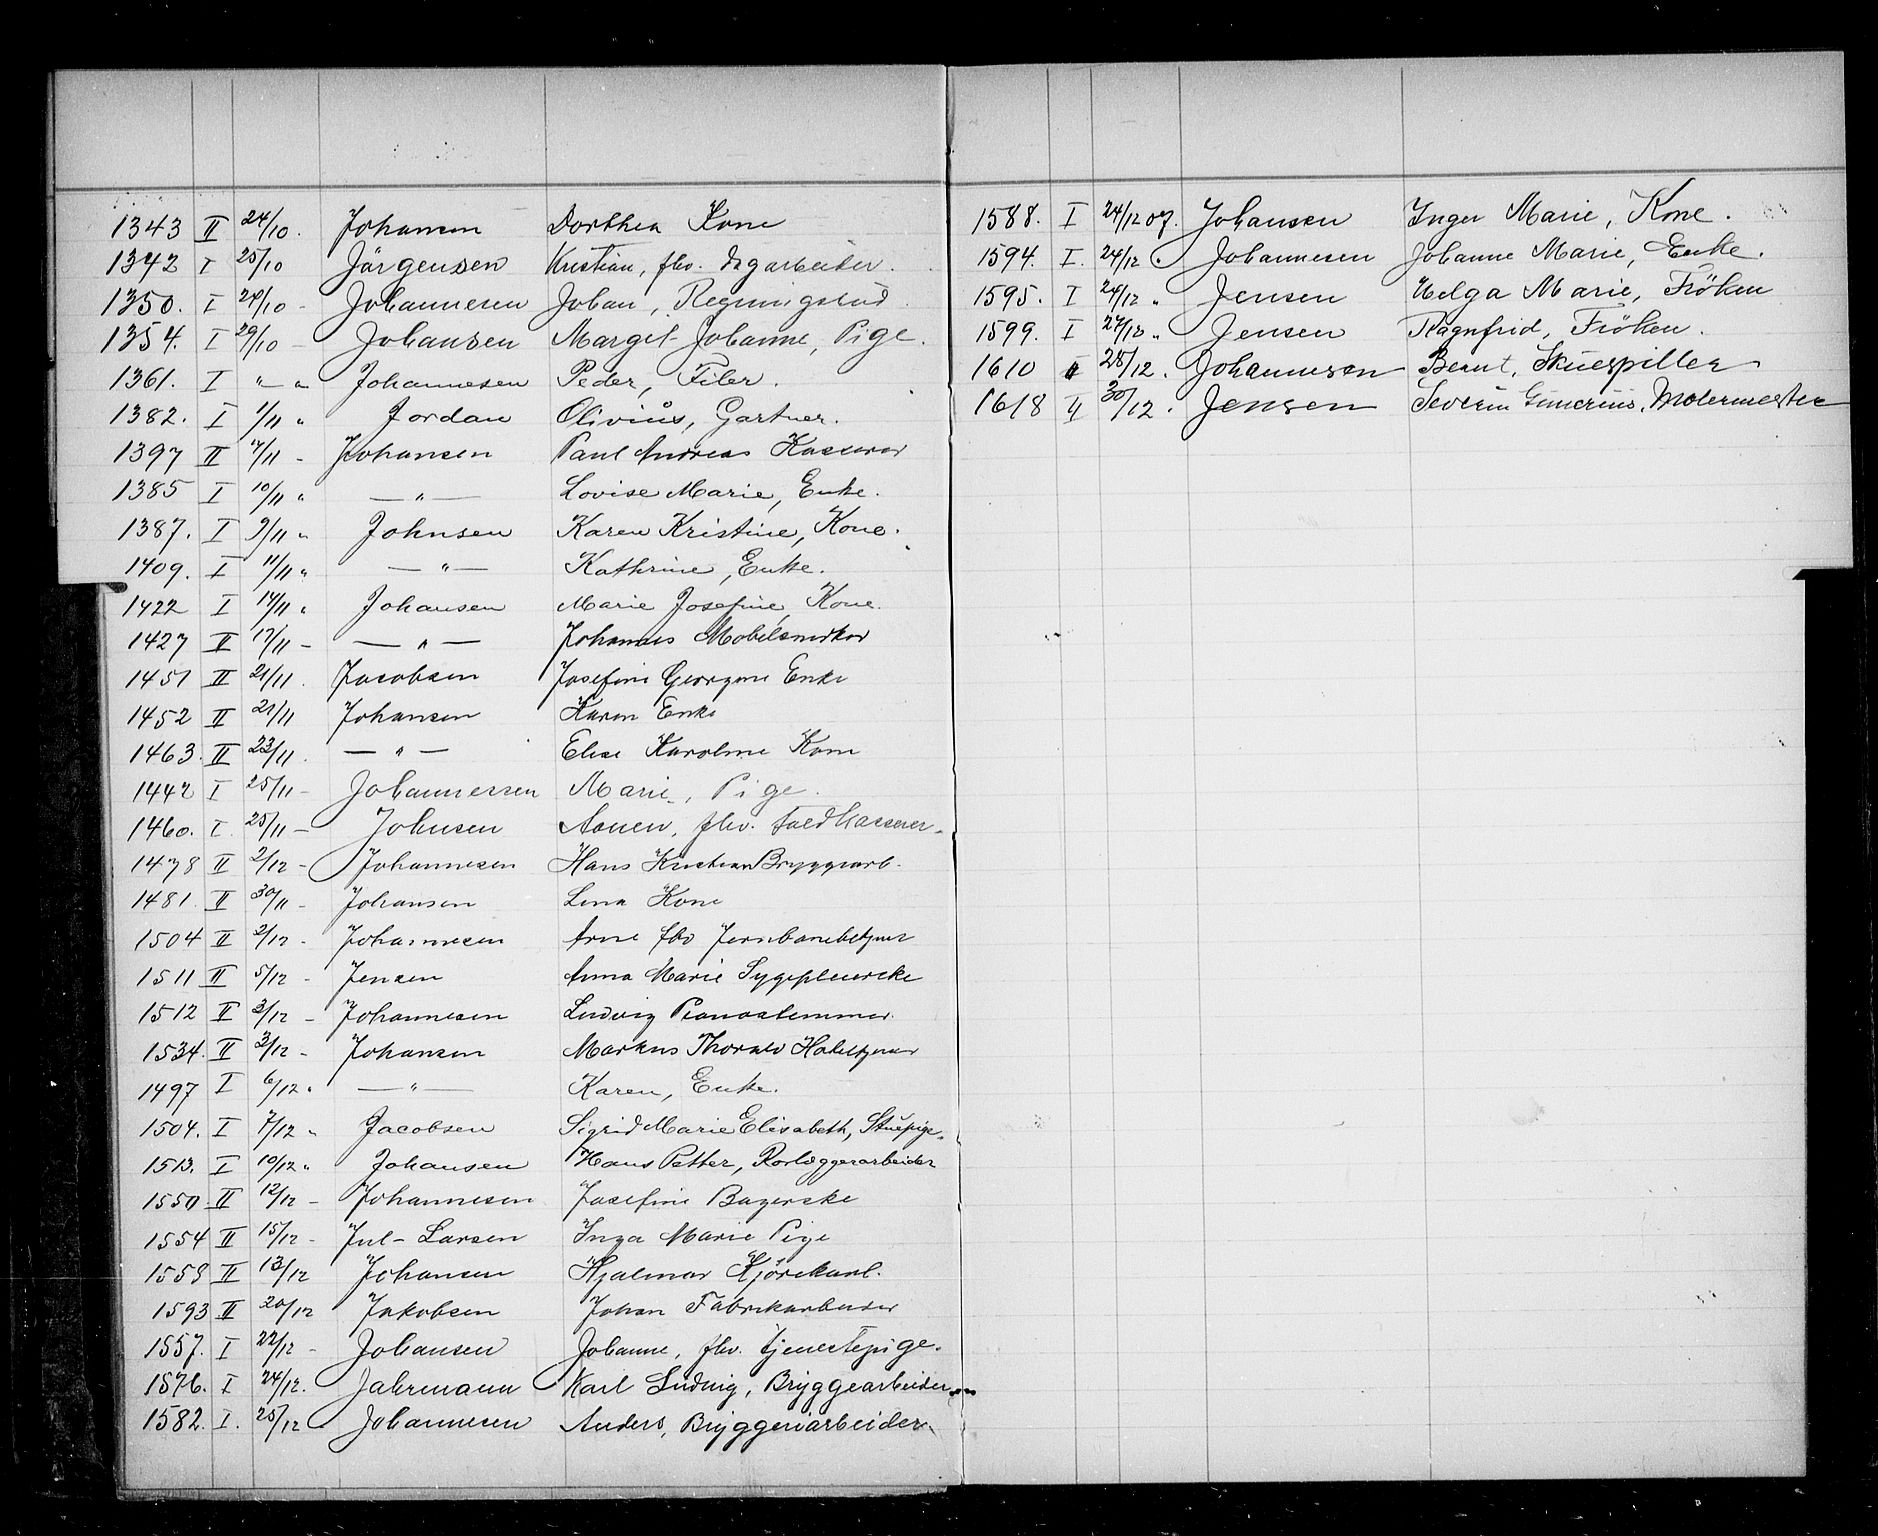 1343 II 24/10. Johansen Dorthea Kone
1342 I 25/10 Jörgensen Kristian, fhv. Dagarbeider.
1350. I 28/10 - Johannesen Johan, Regningsbud.
1354. I 29/10 - Johansen Margit Johanne, Pige.
1361. I " " Johannesen Peder, Filer.
1382. I 1/11 " Jordan Olivius, Gartner.
1397 II 7/11 - Johansen Paul Andreas Kasserer
1385 I 10/11 " — " — Lovise Marie, Enke.
1387. I 9/11 " Johnsen Karen Kristine, Kone.
1409. I 11/11 " — " — Kathrine, Enke.
1422 I 14/11 " Johansen Marie Josefine, Kone.
1427 II 17/11 - — " — Johannes Mobelsnerker
1451 II 21/11. Jacobsen Josefine Georgine Enke
1452 II 21/11 Johansen Karen Enke
1463. II 23/11. — " — Elise Karoline Kone
1442 I 25/11 - Johannessen Marie, Pige.
1460. I. 25/11 - Johnsen fhv. Toldkasserer.
1478 II 2/12 - Johannesen Hans Kristian Bryggearb.
1481 II 30/11 - Johansen Lena Kone
1504 II 2/12 - Johannesen Arne fhv Jernbanebetjent
1511 II 5/12 - Jensen Anna Marie Sygepleierske
1512 II 3/12 - Johannesen Ludvig Pianostemmer.
1534. II 3/12 - Johansen Markus Thorvald
1497 I 6/12 " — " — Karen, Enke.
1504. I 7/12 " Jacobsen Sigrid Marie Elisabeth, Stuepige.
1513. I 10/12 " Johansen Hans Petter, Rorlæggerarbeider
1550 II 12/12 - Johannesen Josefine Bagerske
1554 II 15/12 - Jul-Larsen Inga Marie Pige
1559 II 13/12 Johansen Hjalmar Kjörekarl.
1593 II 20/12 Jakobsen Johan Fabrikarbeider
1557. I 22/12 - Johansen Johanne, fhv. tjenestepige.
1576. I 24/12. Jahrmann Karl Ludvig, Bryggearbeider
1582. I. 25/12 Johannesen Anders, Bryggeriarbeider
1588. I 24/12 07. Johansen Inger Marie, Kone.
1594. I. 24/12 " Johannesen Johanne Marie, Enke.
1595. I 24/12 " Jensen Helga Marie, Fröken
1599. I 27/12 " Jensen Ragnfrid, Fröken.
1610 II 28/12. Johannesen Bernt, Skuespiller
1618 II 30/12. Jensen Severin Gunerius, Malermester